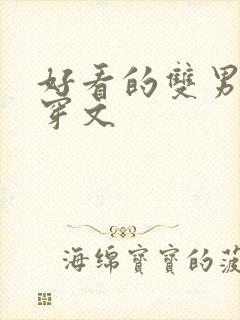 好看的雙男
穿文
海绵寶寶的菠